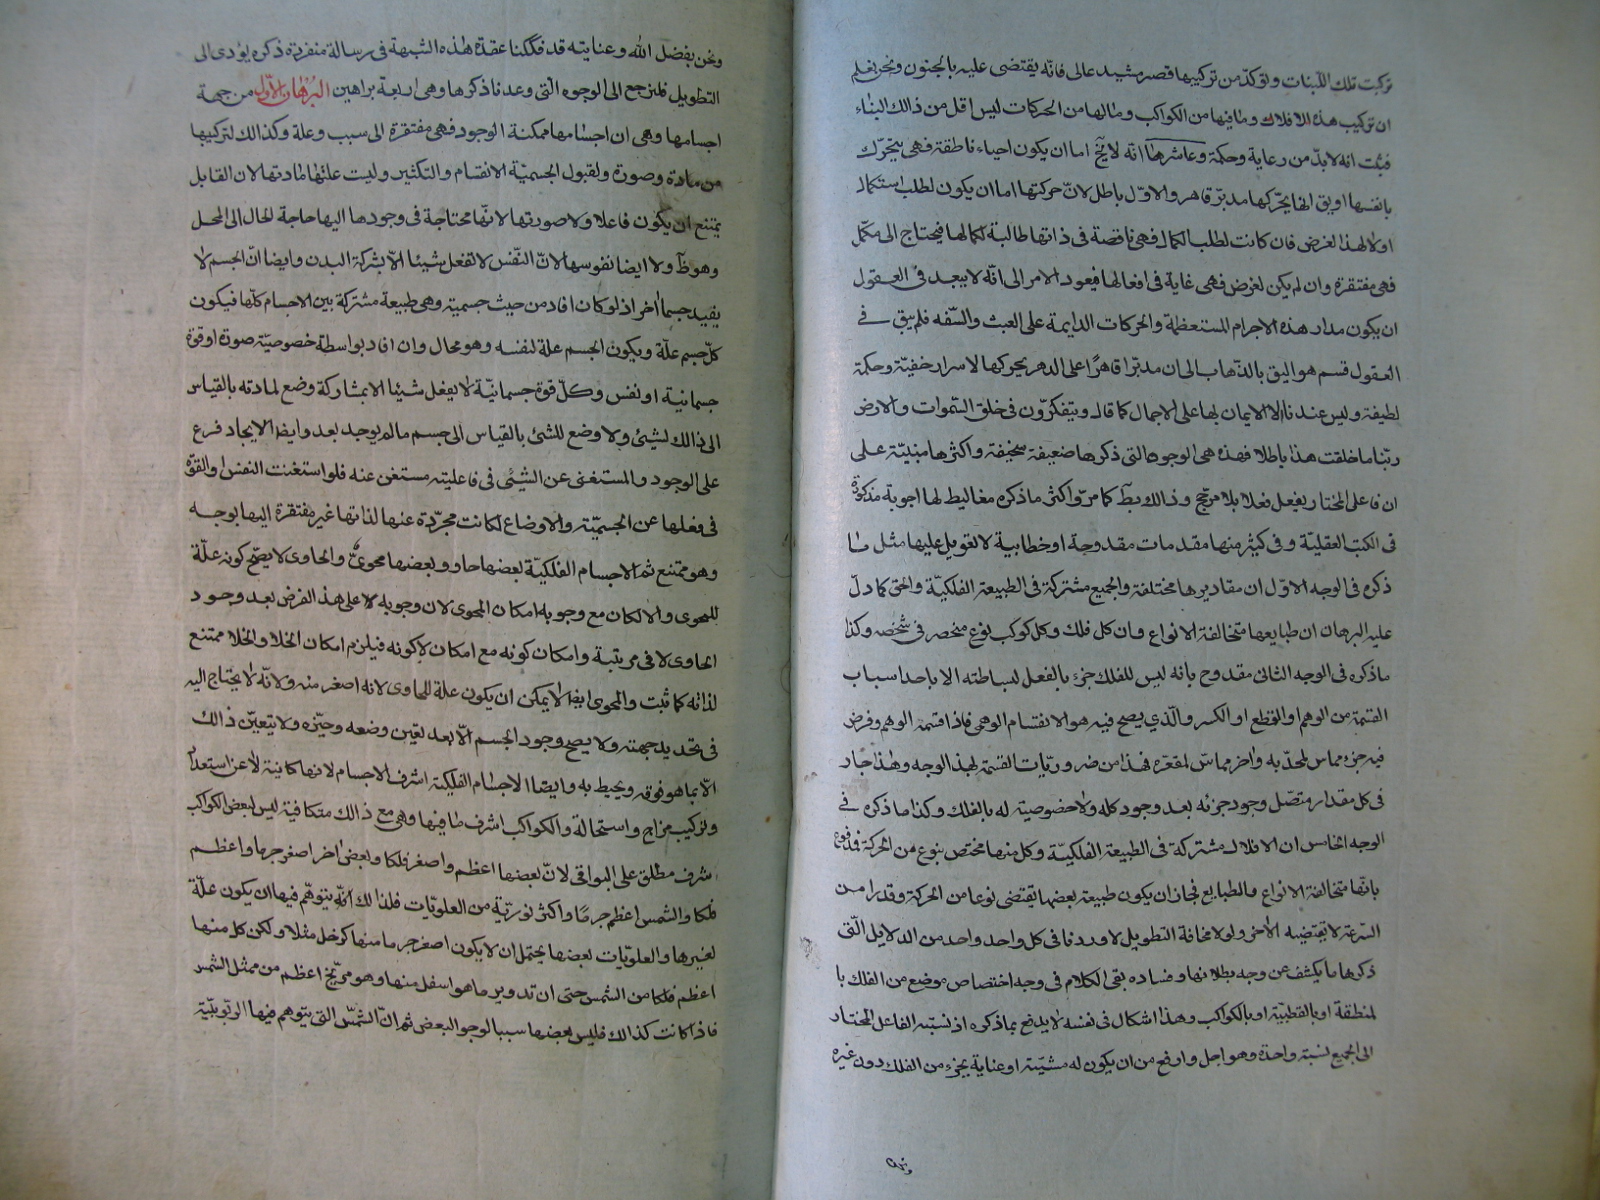 تركبت تلك اللبنات وتوكد من تركيبها قصر مشيد عالى فانه يقتضى عليه بالجنون ونحن نعلم
ان تركيب هذه الافلاك وما فيها من الكواكب ومالها من الحركات ليس اقل من ذالك البناء
فثبت انه لابدّ من رعاية وحكمة وعاشرها انه لايخ اما ان يكون احياء ناطقة فهى يتحرّك
بانفسها اويق انها يحرّكها مدبّر قاهر والاوّل باطل لانّ حركتها اما ان يكون لطلب استكمال
اولا لهذا الغرض فان كانت لطلب الكمال فهى ناقصة فى ذاتها طالبة لكمالها فيحتاج الى مكمّل
فهى مفتقرة وان لم يكن لغرض فهى غاية فى افعالها فيعود الامر الى انّه لا يبعد فى العقول
ان يكون مدار هذه الاجرام المستعظمة والحركات الدايمة على العبث والسّفه فلم يبق فى
العقول قسم هو اليق بالذّهاب الى ان مدبّرا قاهرًا على الدهر يحركها لاسرار خفيّة وحكمة
لطيفة وليس عندنا الا الايمان بها على الاجمال كما قال ويتفكّرون فى خلق السّموات والارض
ربّنا ما خلقت هذا باطلا فهذه هى الوجوه التى ذكرها ضعيفة سخيفة واكثرها مبنيّة على
ان فاعل المختار يفعل فعلا بلا مرجّح وذالك بط كما مرّ واكثر ما ذكره مغاليط لها اجوبة مذكورة
فى الكتب العقليّة وفى كثير منها مقدمات مقدوحة او خطابية لا تعويل عليها مثل ما
ذكره فى الوجه الاوّل ان مقاديرها مختلفة والجميع مشتركة فى الطبيعة الفلكيّة والحق كما دلّ
عليه البرهان ان طبايعها متخالفة الانواع وان كل فلك وكل كوكب نوع منحصر فى شخصه وكذا
ماذكره فى الوجه الثانى مقدوح بانه ليس للفلك جزء بالفعل لبساطته الا باحد اسباب
القسمة من الوهم او القطع او الكسر والّذي يصح فيه هو الانقسام الوهمى فاذا قسّمه الوهم وفرض
فيه جزء مماس لمحدّبه واخر مماسّ لمقعّره فهذا من ضروريّات القسمة لهذا الوجه وهذا جار
فى كل مقدار متّصل وجود جزئه بعد وجود كله ولا خصوصية له بالفلك وكذا ما ذكره فى
الوجه الخامس ان الافلاك مشتركة فى الطبيعة الفلكيّة وكل منها مختص بنوع من الحركة فمدفوع
بانّها متخالفة الانواع والطبايع فجاز ان يكون طبيعة بعضها يقتضى نوعا من الحركة وقدرا من
السّرعة لا يقتضيه الاخر ولولا مخافة التطويل لاوردنا فى كل واحد واحد من الدلايل الّتى
ذكرها ما يكشف عن وجه بطلانها وفساده بقى الكلام فى وجه اختصاص موضع من الفلك با
لمنطقة او بالقطبيّة او بالكواكب وهذا اشكال فى نفسه لا يدفع بما ذكره اذ نسبته الفاعل المختار
الى الجميع نسبة واحدة وهو اجل وارفع من ان يكون له مشيّة او عناية بجزء من الفلك دون غيره
ونحن بفضل الله وعنايته قد فككنا عقدة هذه الشبهة فى رسالة منفردة ذكره يؤدى الى
التطويل فلنرجع الى الوجوه الّتى وعدنا ذكرها وهى اربعة براهين البرهان الاوّل من جهة
اجسامها وهى ان اجسامها ممكنة الوجود فهى مفتقرة الى سبب وعلة وكذالك لتركيبها
من مادة وصورة ولقبول الجسميّة الانقسام والتكثير وليست علتها لمادتها لان القابل
يمتنع ان يكون فاعلا ولا صورتها لانّها محتاجة فى وجودها اليها حاجة الحال الى المحل
وهو ظ ولا ايضا نفوسها لانّ النّفس لا تفعل شيئا الاّ بشركة البدن وايضا انّ الجسم لا
يفيد جسما اخر اذ لو كان افاد من حيث جسميته وهى طبيعة مشتركة بين الاجسام كلّها فيكون
كلّ جسم علّة ويكون الجسم علة لنفسه وهو محال وان افاد بواسطة خصوصيّة صورة او قوة
جسمانية او نفس وكلّ قوة جسمانيّة لا يفعل شيئا الا بمشاركة وضع لمادته بالقياس
الى ذالك لشيئ ولا وضع للشئ بالقياس الى جسم ما لم يوجد بعد وايضا الايجاد فرع
على الوجود والمستغنى عن الشيئ فى فاعليته مستغن عنه فلو استغنت النفس او القوّة
فى فعلها عن الجسميّة والاوضاع لكانت مجرّدة عنها لذاتها غير مفتقرة اليها بوجه
وهو ممتنع ثم الاجسام الفلكيّة بعضها حاو وبعضها محوىّ والحاوى لا يصحّ كونه علّة
للمحوى والا لكان مع وجوبه امكان المحوى لان وجوبه لا على هذ الفرض بعد وجود
الحاوى لا فى مرتبة وامكان كونه مع امكان لاكونه فيلزم امكان الخلا والخلا ممتنع
لذاته كما ثبت والمحوى ايضا لا يمكن ان يكون علة للحاوى لانه اصغر منه ولانّه لا يحتاج اليه
فى تحديد جهته ولا يصح وجود الجسم الاّ بعد تعين وضعه وحيّزه ولا يتعيّن ذالك
الاّ بما هو فوقه ويحيط به وايضا الاجسام الفلكية اشرف الاجسام لانها كانية لا عن استعداد
وتركيب مزاج واستحالة والكواكب اشرف ما فيها وهى مع ذالك متكافية ليس لبعض الكواكب
شرف مطلق على البواقى لانّ بعضها اعظم واصغر فلكا وبعض اخر اصغر جرما واعظم
فلكا والشمس اعظم جرمًا واكثر نوريّة من العلويّات فلذالك انّه يتوهّم فيها ان يكون علّة
لغيرها والعلويّات بعضها يحتمل ان لا يكون اصغر جرما منها كزحل مثلا ولكن كل منها
اعظم فلكا من الشمس حتى ان تدوير ما هو اسفل منها وهو مرّيخ اعظم من ممثل الشمس
فاذا كانت كذالك فليس بعضها سببا لوجود البعض ثم انّ الشمس التى يتوهم فيها الربوبيّة